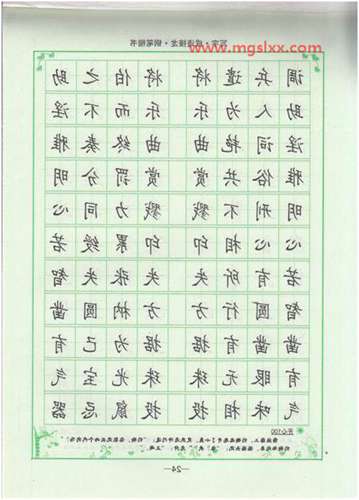 www.mgslxx.com
成语接龙·钢笔楷书
调兵遣将 将伯之助
助人为乐 乐而不淫
淫词艳曲 曲终奏雅
雅俗共赏 赏罚分明
明刑不戮 戮力同心
心心相印 印累绶若
若有所失 失张失智
智圆行方 方枘圆凿
凿凿有据 据为己有
有眼无珠 珠光宝气
气味相投 投鼠忌器
开心100
—24—